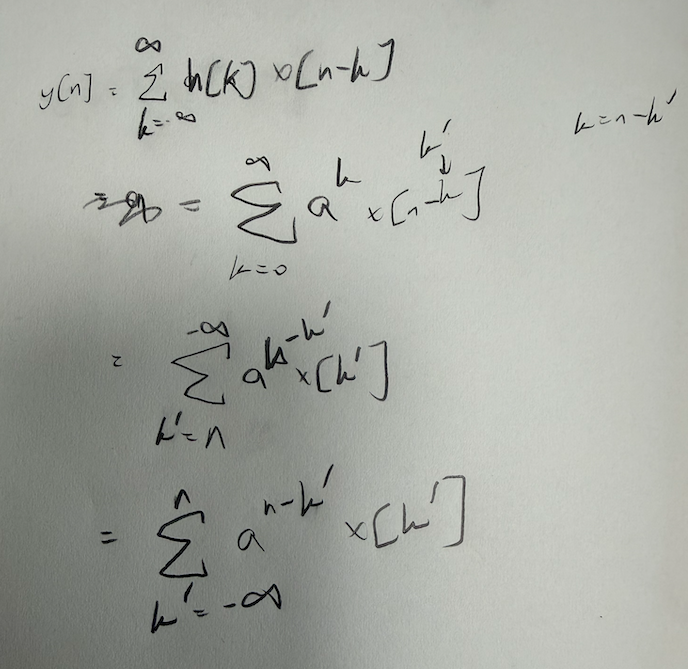 y[n] = ∑_{k=-∞}^{∞} h[k] x[n-k]
k = n-k'
= ∑_{k=0}^{∞} a^k x[n-k]
k' ↓
= ∑_{k'=n}^{-∞} a^{n-k'} x[k']
= ∑_{k'=-∞}^{n} a^{n-k'} x[k']